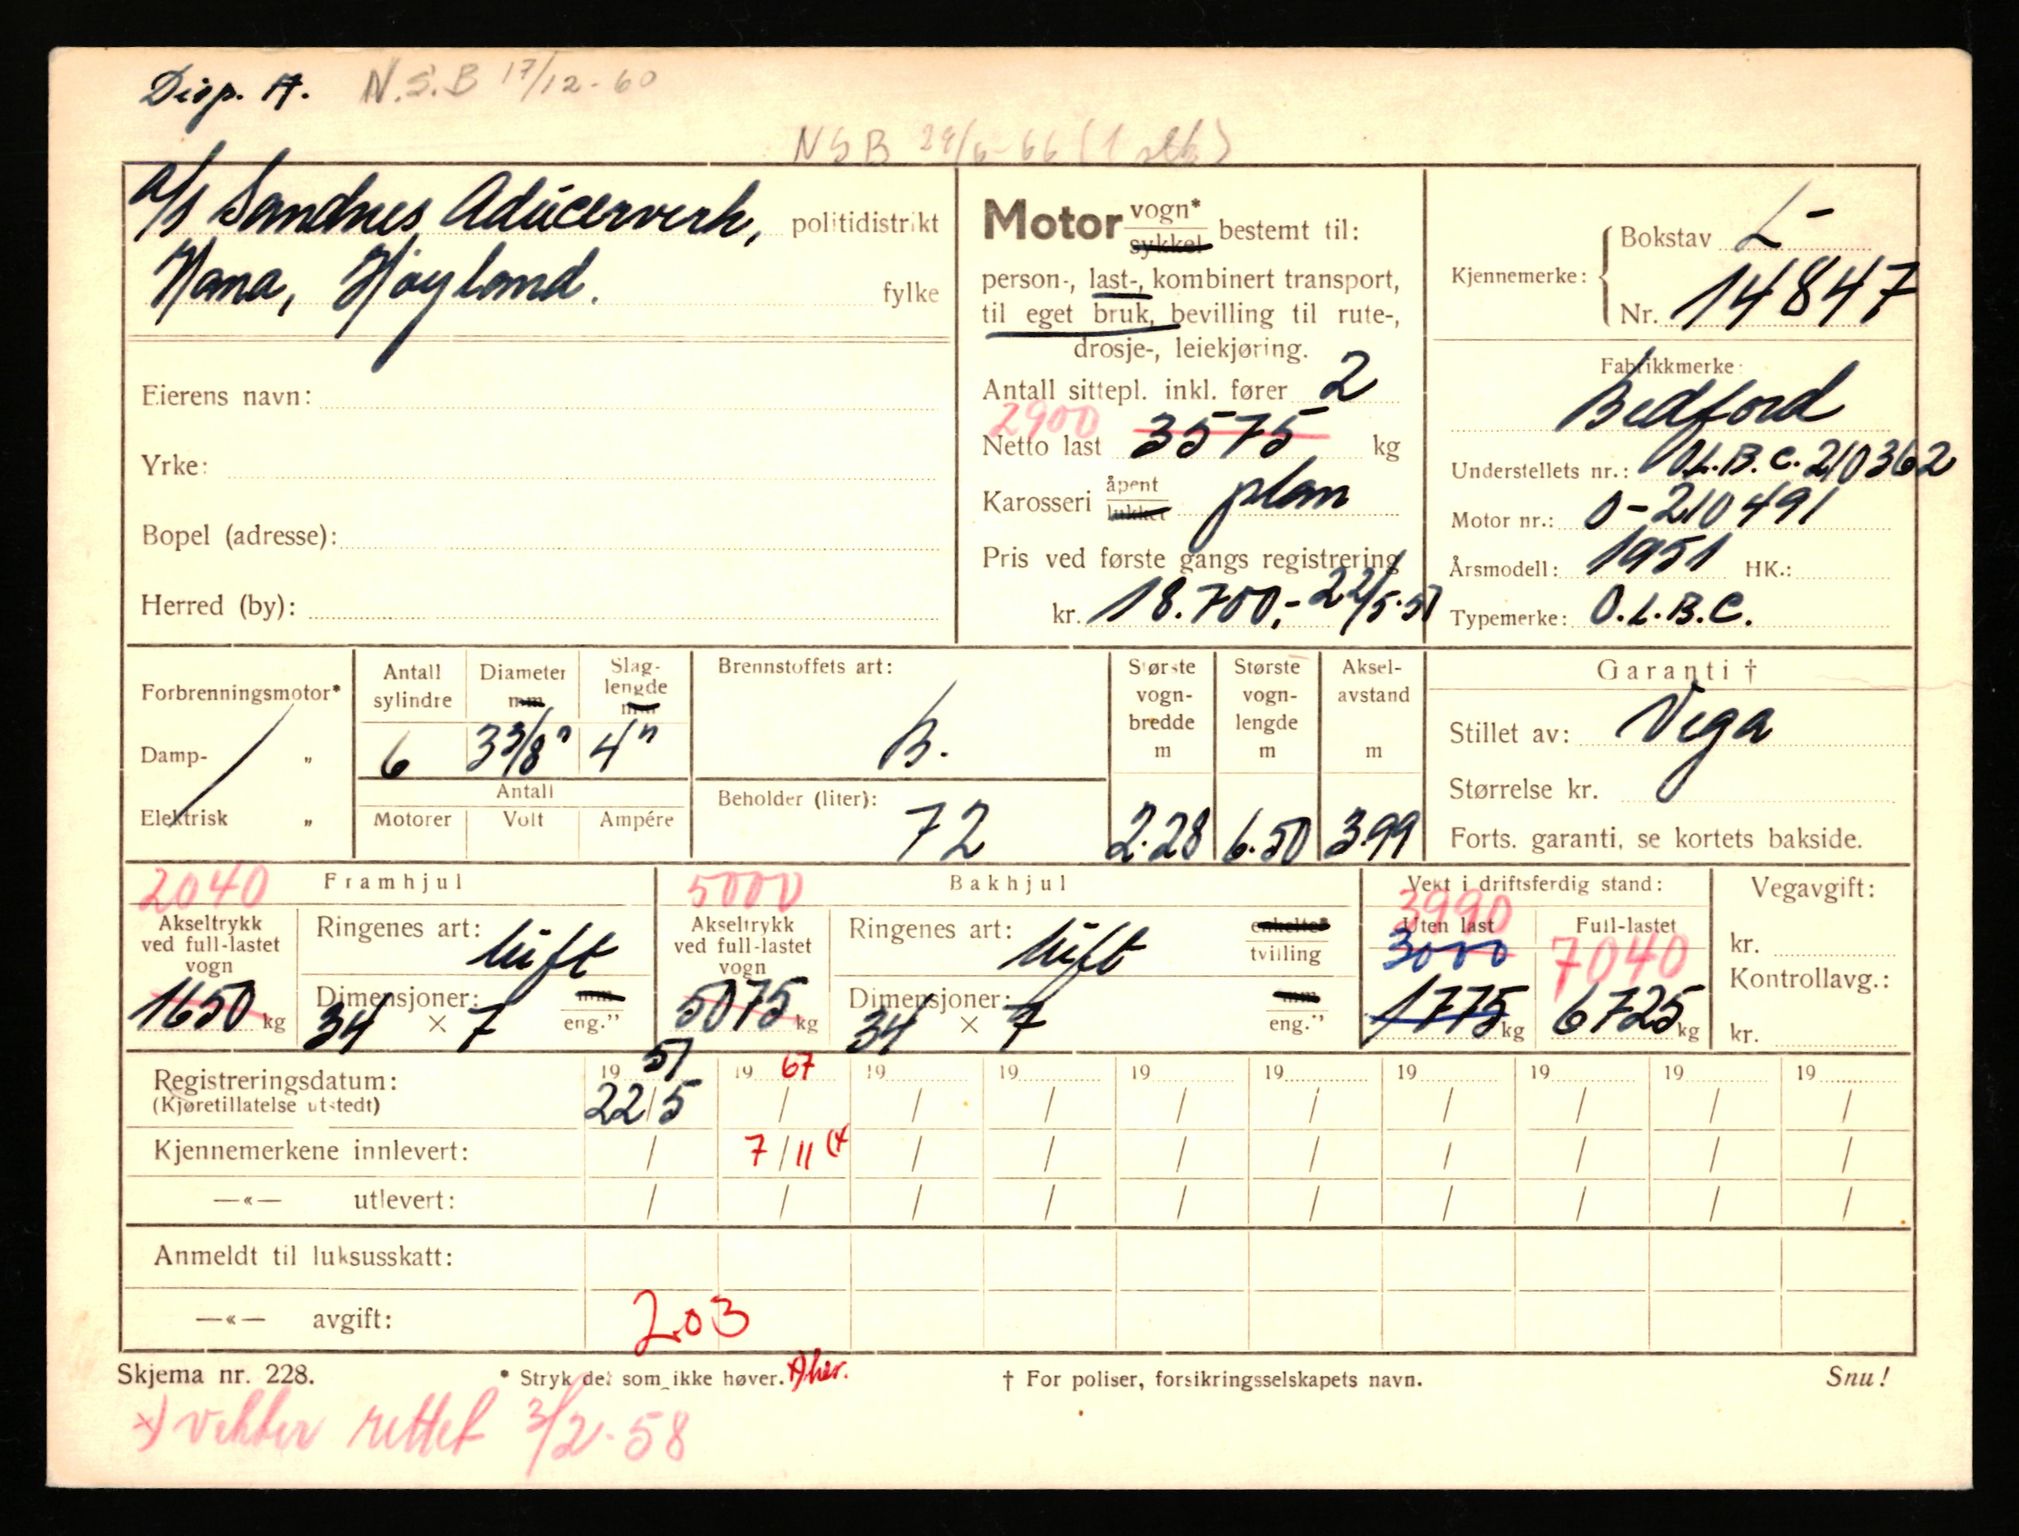 Disp. A. N.S.B 17/12-60
NSB 29/6-66 (1 stk)
a/s Sandnes Aducerverk, politidistrikt
Hana, Høyland. fylke
Eierens navn:
Yrke:
Bopel (adresse):
Herred (by):
Motor vogn* sykkel bestemt til:
person-, last-, kombinert transport,
til eget bruk, bevilling til rute-,
drosje-, leiekjøring.
Antall sittepl. inkl. fører 2
2900
Netto last 3575 kg
Karosseri åpent lukket plan
Pris ved første gangs registrering
kr. 18.700,- 22/5-51
Kjennemerke: Bokstav L-
Nr. 14847
Fabrikkmerke:
Bedford
Understellets nr.: O.L.B.C. 210362
Motor nr.: O-210491
Årsmodell: 1951 HK.:
Typemerke: O.L.B.C.
Forbrenningsmotor*
Damp- „
Elektrisk „
Antall sylindre 6
Diameter mm 3 3/8"
Slaglengde mm 4"
Antall
Motorer Volt Ampére
Brennstoffets art:
B.
Beholder (liter):
72
Største vogn-bredde m 2.28
Største vogn-lengde m 6.50
Aksel-avstand m 3.99
Garanti †
Stillet av: Vega
Størrelse kr.
Forts. garanti, se kortets bakside.
2040 Framhjul
Akseltrykk ved full-lastet vogn
1650 kg
Ringenes art: luft
Dimensjoner: mm
34 × 7 eng.”
5000 Bakhjul
Akseltrykk ved full-lastet vogn
5075 kg
Ringenes art: luft enkelte* tvilling
Dimensjoner: mm
34 × 7 eng.”
Vekt i driftsferdig stand:
3990
Uten last Full-lastet
3000 7040
1775 kg 6725 kg
Vegavgift:
kr.
Kontrollavg.:
kr.
Registreringsdatum: 19 51 19 67 19 19 19 19 19 19 19 19
(Kjøretillatelse utstedt) 22/5 / / / / / / / / /
Kjennemerkene innlevert: / 7/11 / / / / / / / /
—«— utlevert: / / / / / / / / / /
Anmeldt til luksusskatt:
—«— avgift: 203
Skjema nr. 228. * Stryk det som ikke høver. † For poliser, forsikringsselskapets navn. Snu!
x) vekter rettet 3/2-58